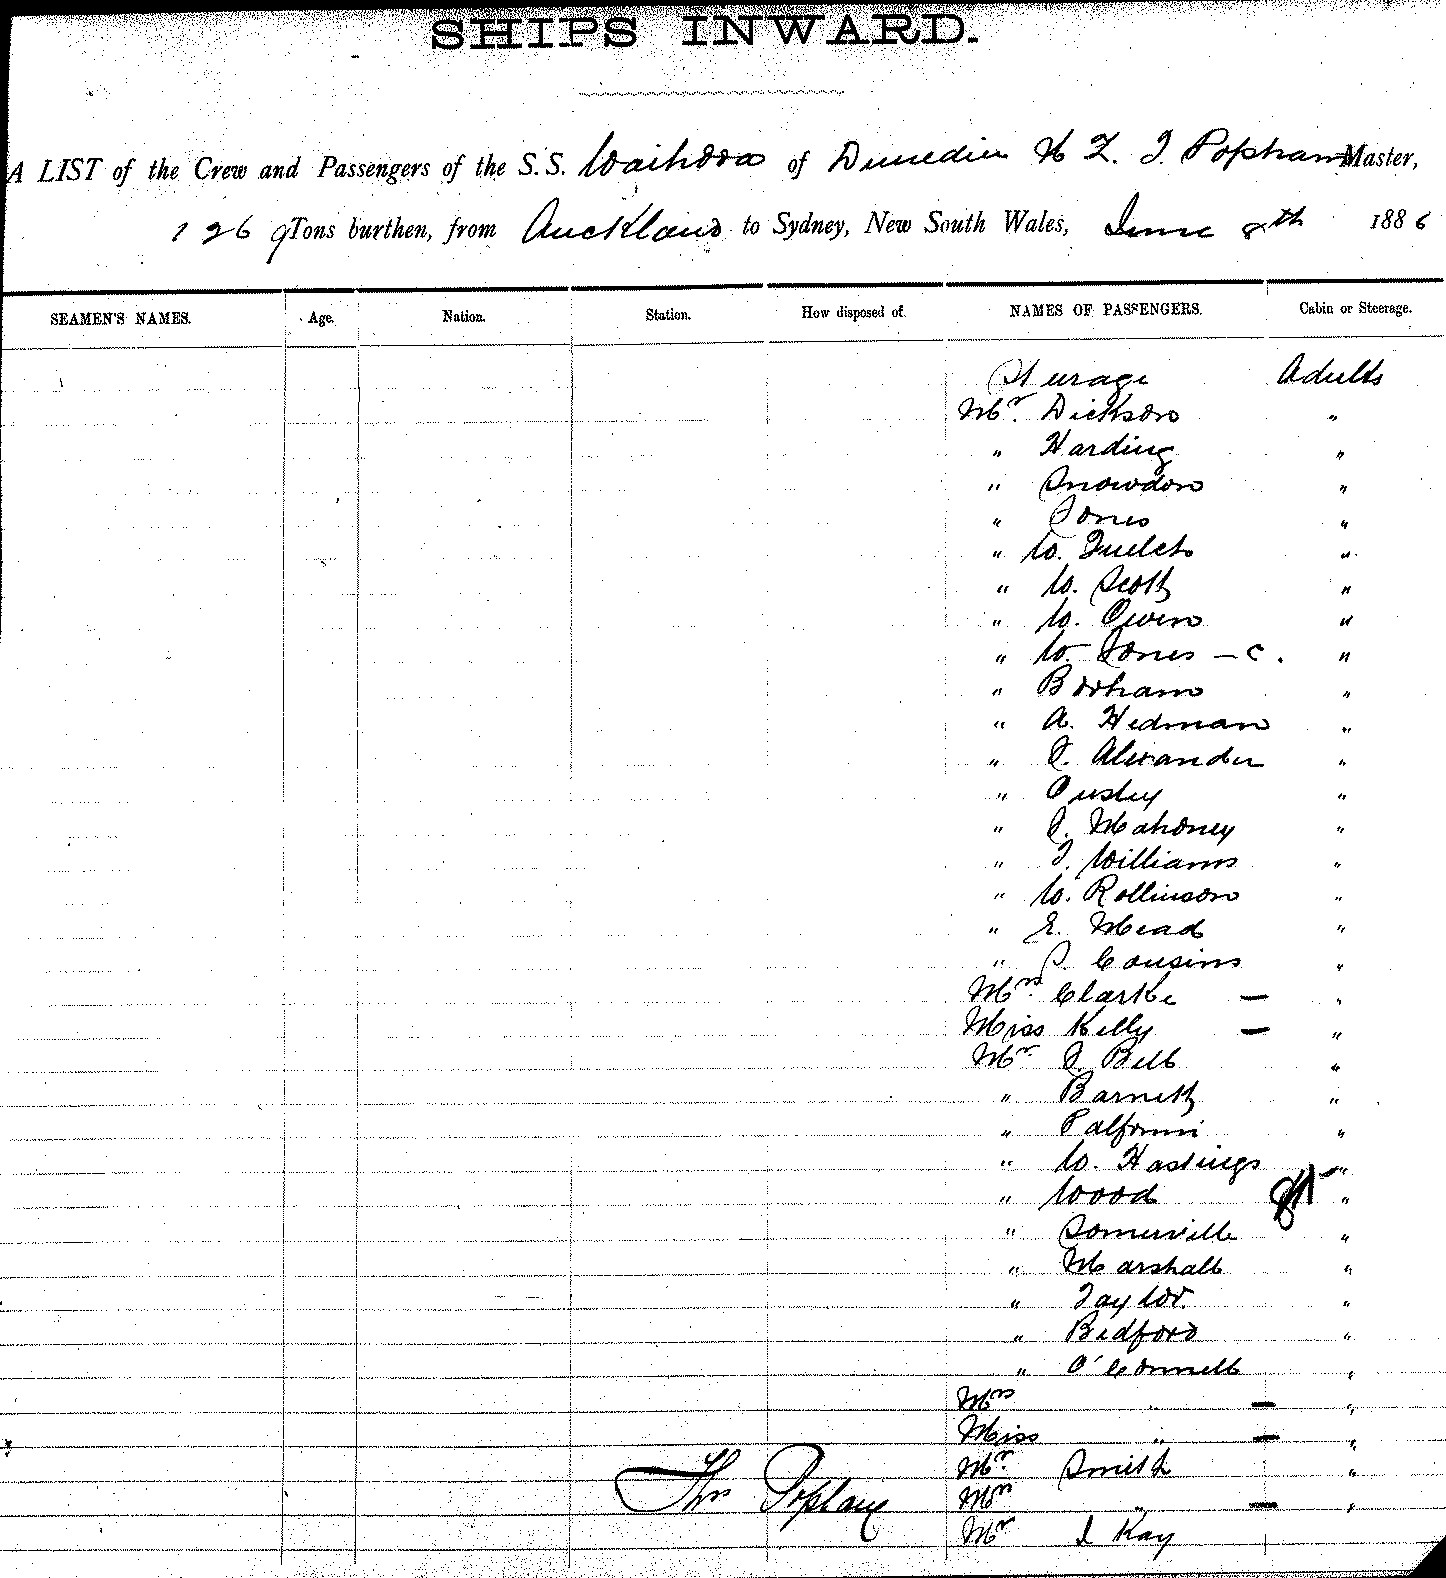 SHIPS INWARD.
A LIST of the Crew and Passengers of the S.S. Waihora of Dunedin N Z. T. Popham Master,
1269 Tons burthen, from Auckland to Sydney, New South Wales, June 8th 1886
SEAMEN'S NAMES. Age. Nation. Station. How disposed of. NAMES OF PASSENGERS. Cabin or Steerage.
Sturage Adults
Mr. Dickson "
" Harding "
" Snowdon "
" Jones "
" W. Quelch "
" W. Scott "
" W. Owen "
" W. Jones - C. "
" Boxham "
" A. Hedman "
" J. Alexander "
" Pusley "
" J. Mahoney "
" T. Williams "
" W. Rollinson "
" E. Mead "
" S. Cousins "
Mrs. Clarke - "
Miss Kelly - "
Mr. J. Bell "
" Barnett "
" "
" W. Hastings "
" Wood "
" Somerville "
" Marshall "
" Taylor. "
" Bedford "
" O'Connell "
Mrs " - "
Miss " - "
Mr. Smith "
Mrs " - "
Thos Popham
Mr J Kay